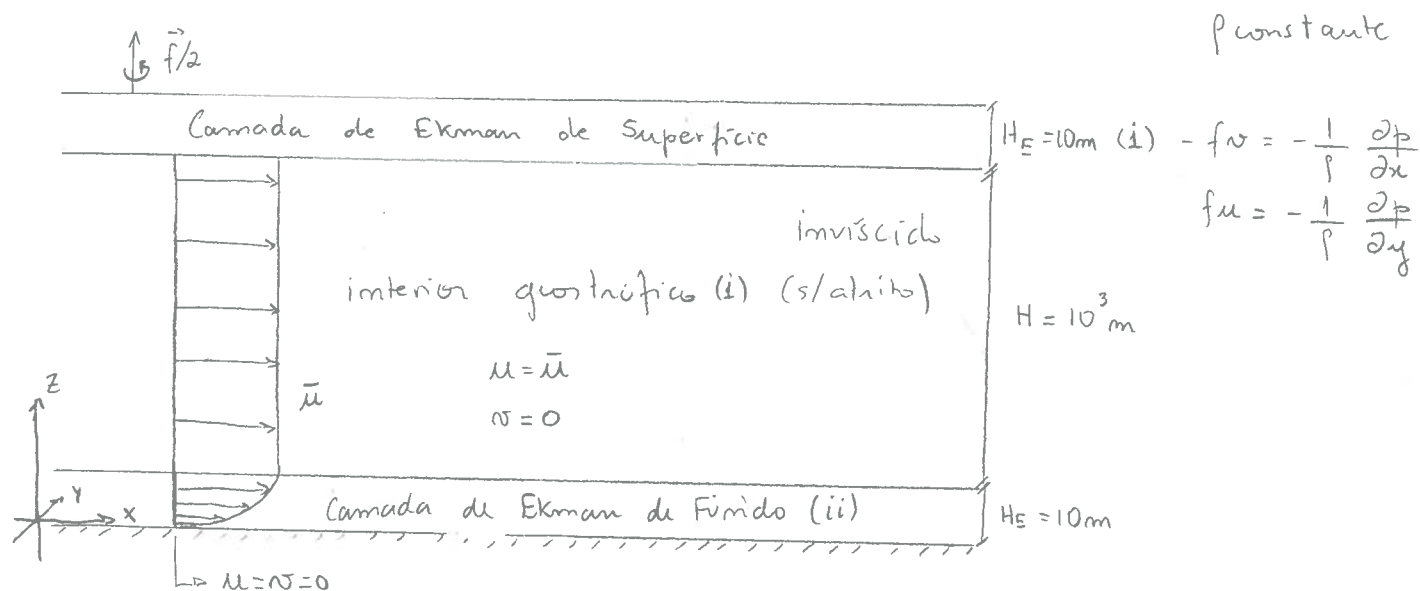 ρ constante
f⃗/2
Camada de Ekman de Superfície
H_E = 10m (i) - fv = - 1/ρ ∂p/∂x
fu = - 1/ρ ∂p/∂y
invíscido
interior geostrófico (i) (s/atrito)
H = 10³ m
u = ū
v = 0
ū
z
y
x
Camada de Ekman de Fúndo (ii)
H_E = 10m
u = v = 0